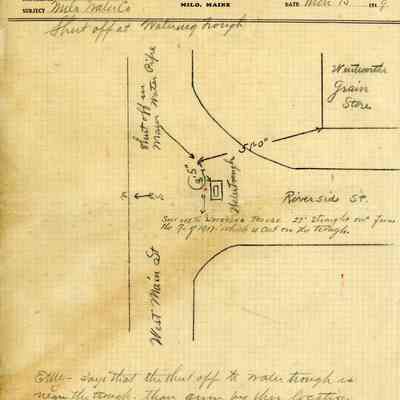 SUBJECT Milo Water Co MILO, MAINE DATE Mch 15 1919
Shut off at Watering trough
Wentworth
Grain
Store
Shut off in
Main Water Pipe
51'-0"
8'-5"
Watertrough
Riverside St.
N S
27' straight out from
the 9 of 1917 which is cut on the trough.
West Main St
says that the shut off to water trough is
near the trough. than given by this location